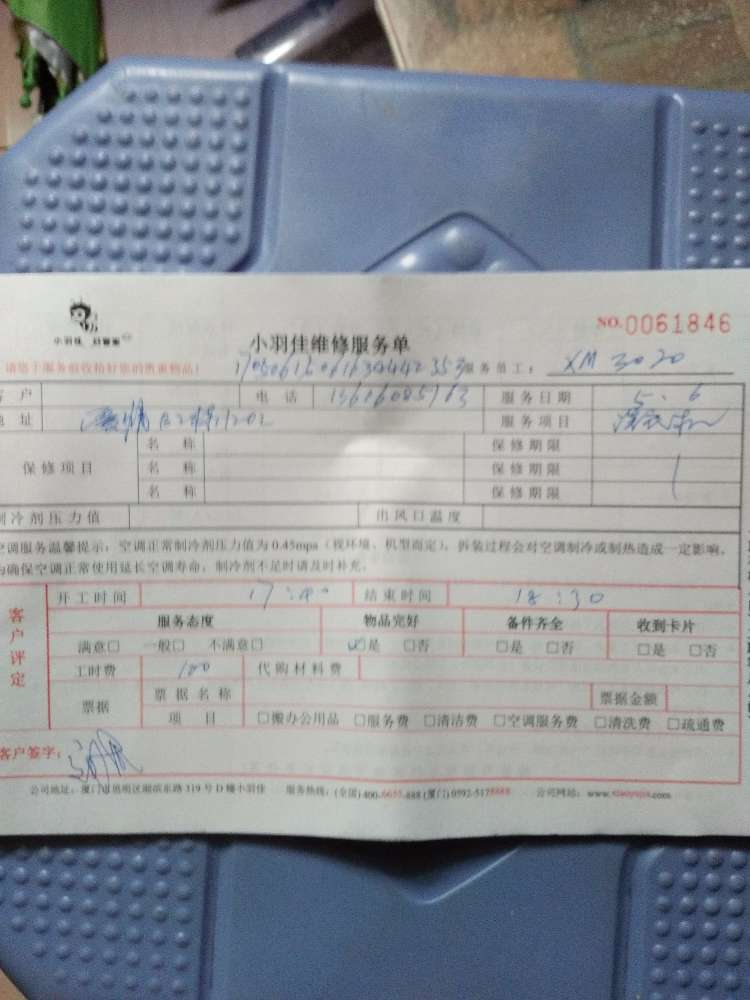 NO.0061846
小羽佳
小羽佳维修服务单
服务员工: XM 3020
户 电话 服务日期 5.6
址 服务项目
名称 保修期限
保修项目 名称 保修期限
名称 保修期限
制冷剂压力值 出风口温度
空调服务温馨提示:空调正常制冷剂压力值为0.45mpa(视环境、机型而定),拆装过程会对空调制冷或制热造成一定影响,
为确保空调正常使用延长空调寿命,制冷剂不足时请及时补充。
客户评定
开工时间 17:40 结束时间 18:30
服务态度 物品完好 备件齐全 收到卡片
满意□ 一般□ 不满意□ ☑是 □否 □是 □否 □是 □否
工时费 100 代购材料费
票据 票据名称 票据金额
项目 □搬办公用品 □服务费 □清洁费 □空调服务费 □清洗费 □疏通费
客户签字:
公司地址:厦门市思明区湖滨东路319号D幢小羽佳 服务热线:(全国)400-6655-888 (厦门)0592-5178888 公司网站:www.xiaoyujia.com